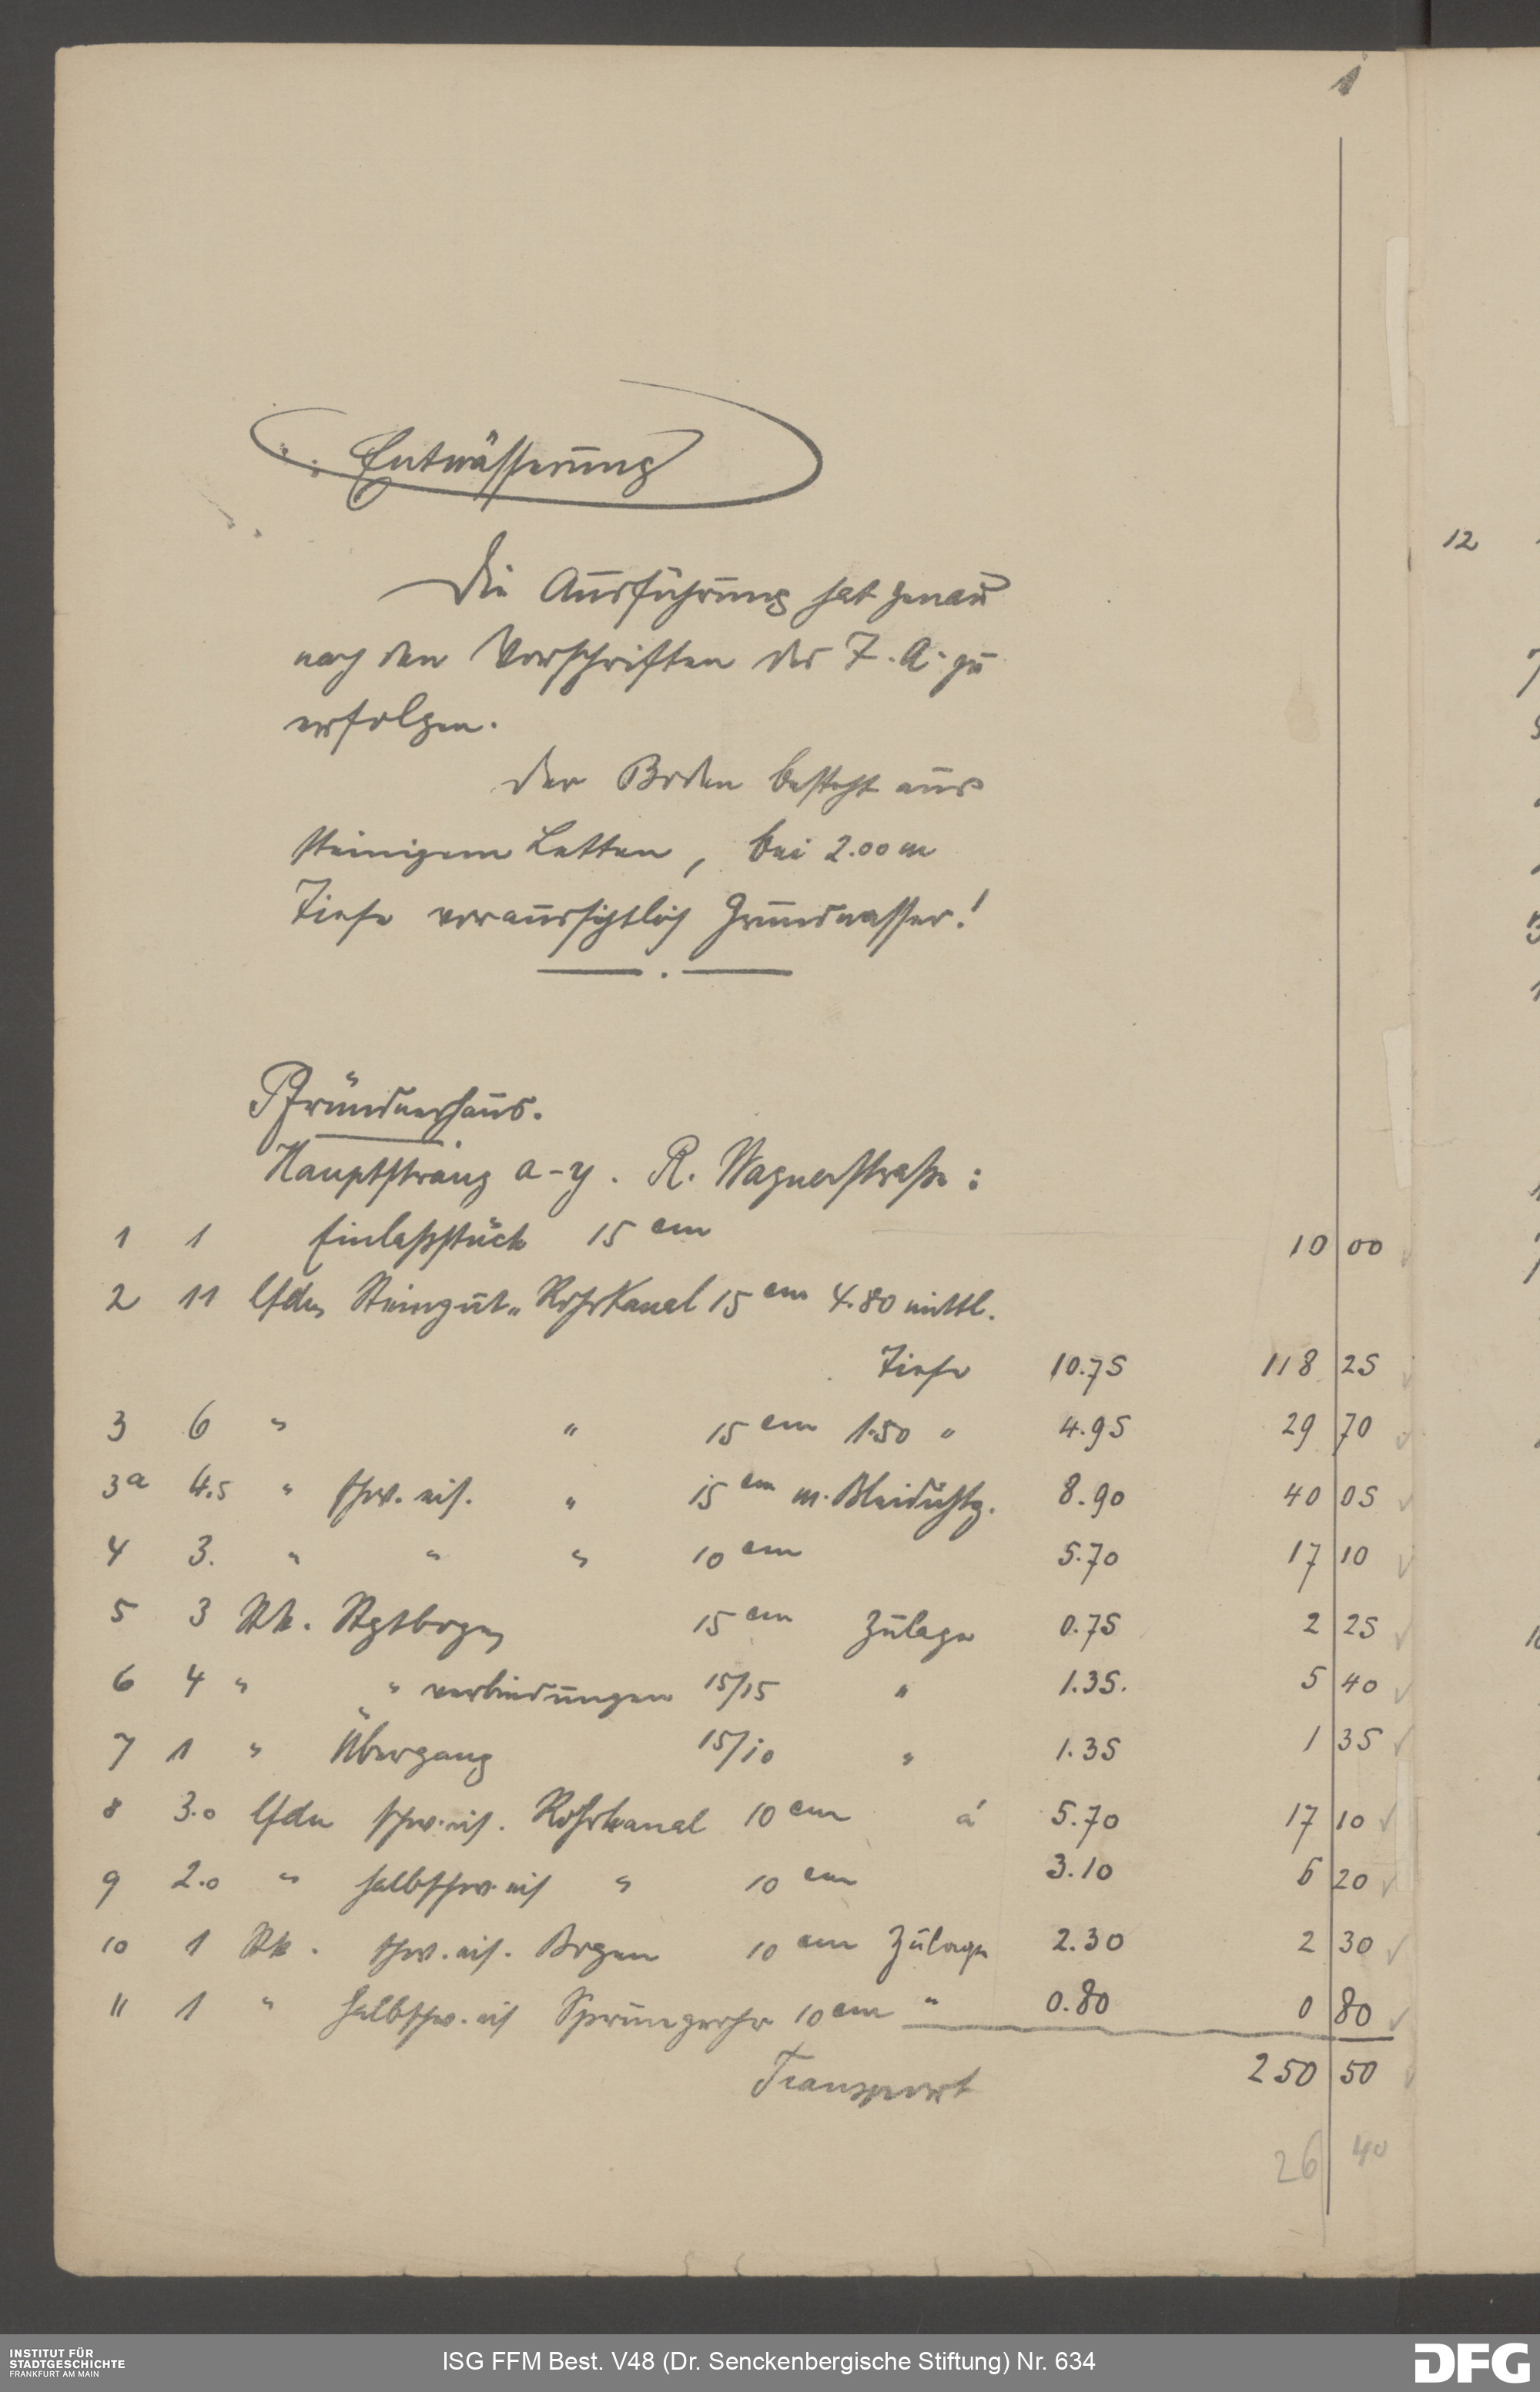 1
Entwässerung
Die Ausführung hat genau
nach den Vorschriften des T. A. zu
erfolgen.
Der Boden besteht aus
steinigem Letten, bei 2.00 m
Tiefe voraussichtlich Grundwasser!
Pfründnerhaus.
Hauptstrang a-y. R. Wagnerstraße:
1 1 Einlaßstück 15 cm 10 00
2 11 lfdm Steingut- Rohrkanal 15 cm 4.80 mittl.
Tiefe 10.75 118 25
3 6 " " 15 cm 1.50 " 4.95 29 70
3a 4.5 " schw. eis. " 15 cm m. Bleidichtg. 8.90 40 05
4 3. " " " 10 cm 5.70 17 10
5 3 Stk. Stgtbogen 15 cm Zulage 0.75 2 25
6 4 " " verbindungen 15/15 " 1.35. 5 40
7 1 " Übergang 15/10 " 1.35 1 35
8 3.0 lfdm schw. eis. Rohrkanal 10 cm á 5.70 17 10
9 2.0 " halbschw. eis " 10 cm 3.10 6 20
10 1 Stk. schw. eis. Bogen 10 cm Zulage 2.30 2 30
11 1 " halbschw. eis Sprungrohr 10 cm " 0.80 0 80
Transport 250 50
26 40
12
INSTITUT FÜR
STADTGESCHICHTE
FRANKFURT AM MAIN
ISG FFM Best. V48 (Dr. Senckenbergische Stiftung) Nr. 634
DFG